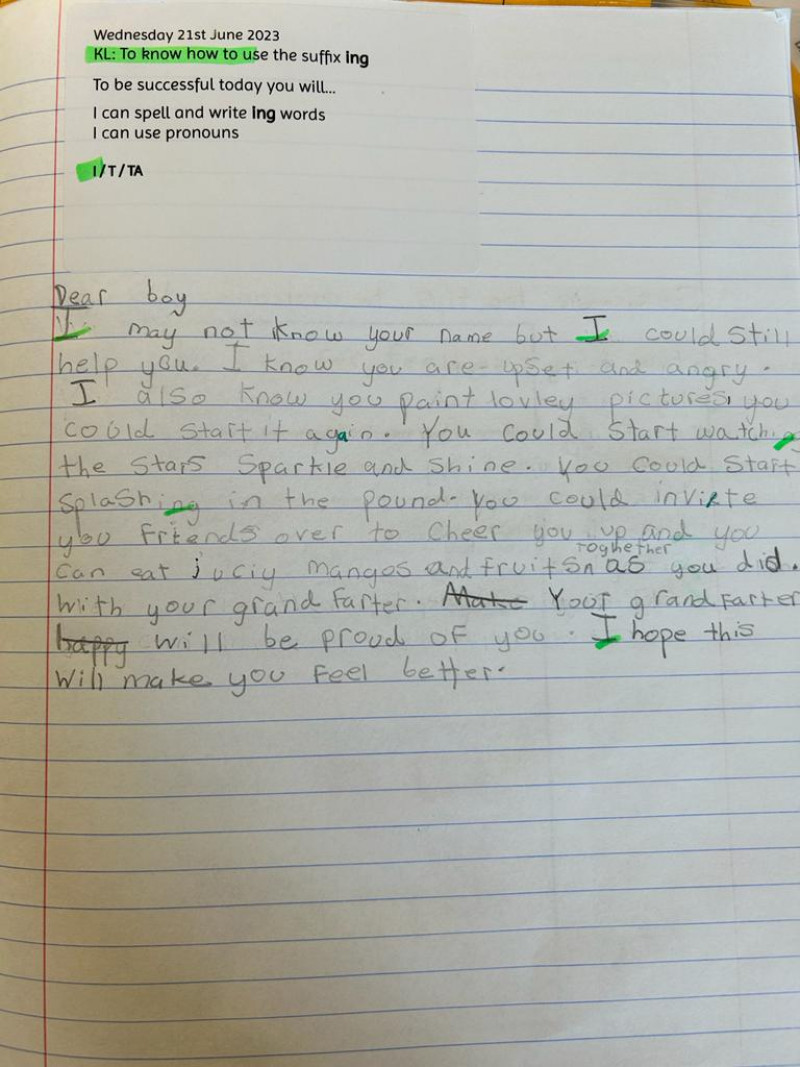 Wednesday 21st June 2023
KL: To know how to use the suffix ing
To be successful today you will...
I can spell and write ing words
I can use pronouns
I/T/TA
Dear boy
I may not know your name but I could still
help you. I know you are upset and angry.
I also know you paint lovley pictures, you
could start it again. You could start watching
the stars sparkle and shine. You could start
splashing in the pound. You could invite
you friends over to cheer you up and you
toghether
can eat juciy mangos and fruits as you did.
with your grand farter. Make Your grand farter
happy will be proud of you. I hope this
will make you feel better.